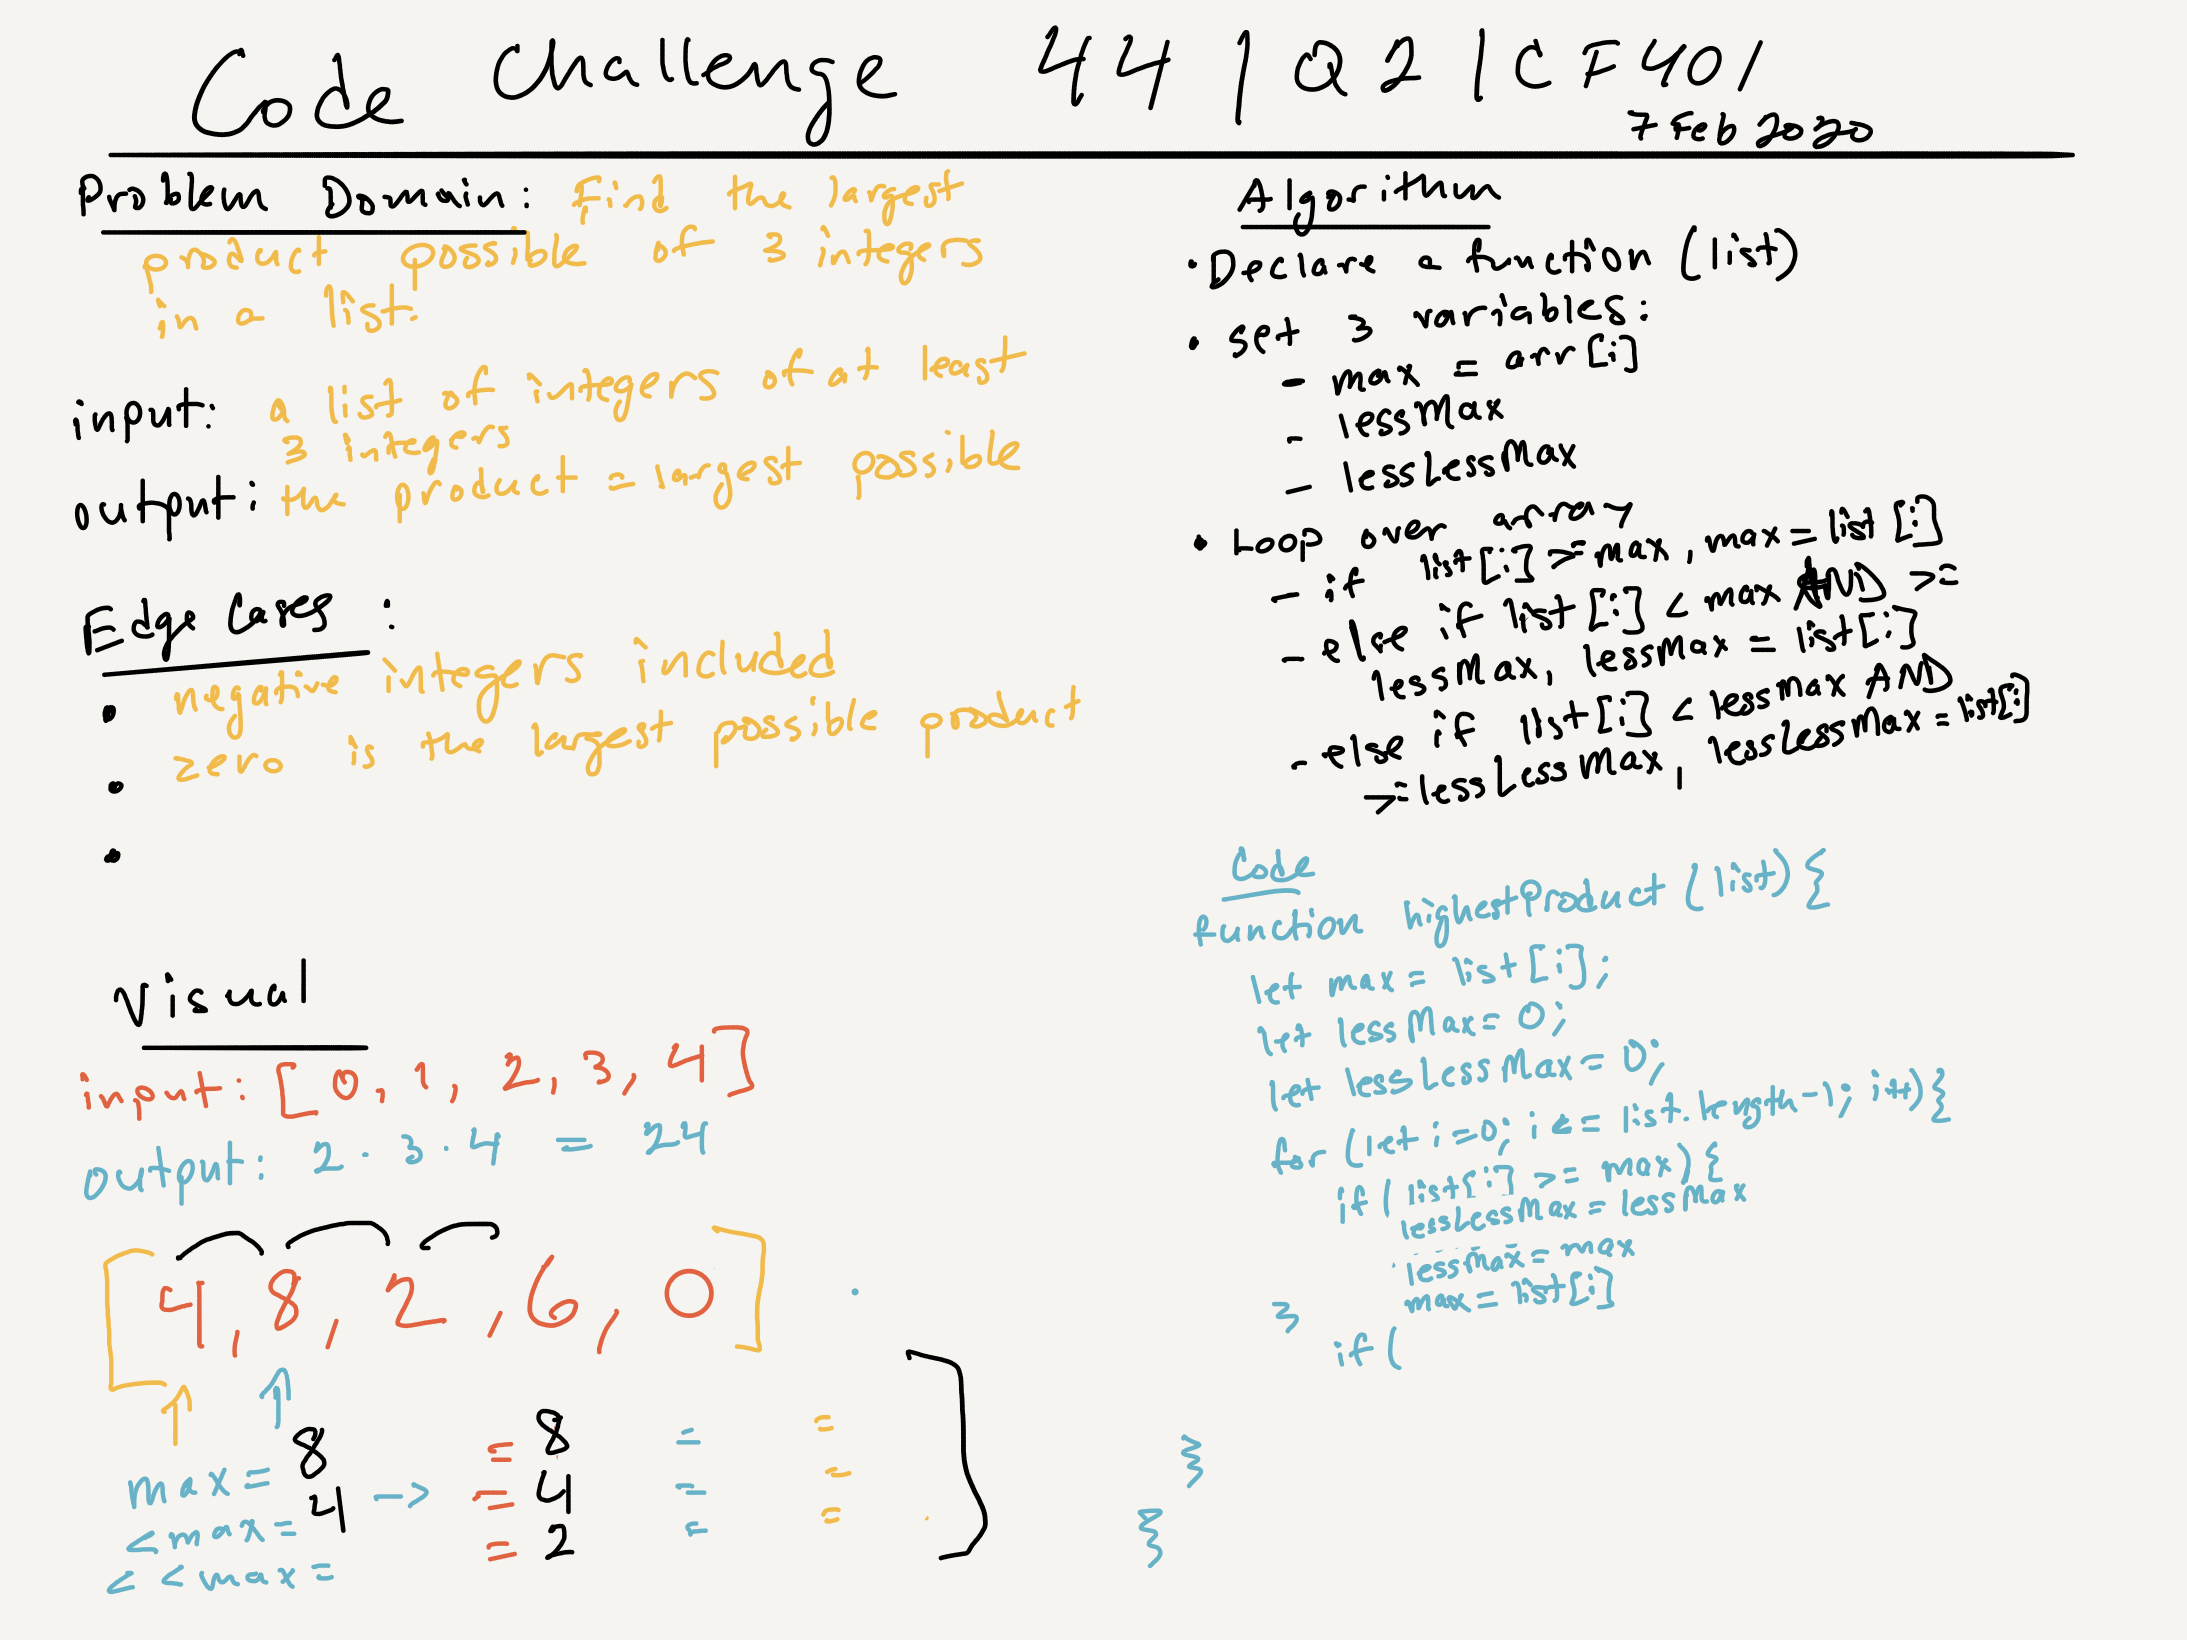 Code Challenge 44 | Q2 | CF401
7 Feb 2020
Problem Domain: Find the largest
product possible of 3 integers
in a list.
input: a list of integers of at least
3 integers
output: the product = largest possible
Edge Cases:
• negative integers included
• zero is the largest possible product
•
Visual
input: [0, 1, 2, 3, 4]
output: 2 · 3 · 4 = 24
[4, 8, 2, 6, 0]
max = 8 -> = 8 = =
<max = 4 = 4 = =
< <max = = 2 = =
Algorithm
• Declare a function (list)
• set 3 variables:
- max = arr[i]
- lessMax
- lessLessMax
• Loop over array
- if list[i] >= max, max = list[i]
- else if list[i] < max AND >=
lessMax, lessMax = list[i]
- else if list[i] < lessMax AND
>= lessLessMax, lessLessMax = list[i]
Code
function highestProduct (list) {
let max = list[i];
let lessMax = 0;
let lessLessMax = 0;
for (let i=0; i <= list.length-1; i++) {
if (list[i] >= max) {
lessLessMax = lessMax
lessMax = max
max = list[i]
}
if (
}
}